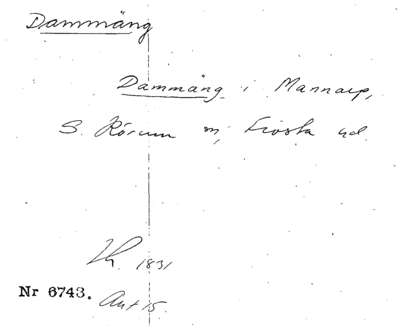 Dammäng
Dammäng i Mannarp,
S. Rörum sn, Frosta hd.
1831
Nr 6743. Ant 15.